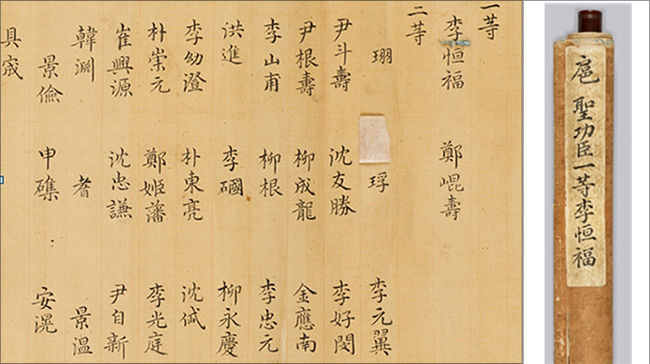 一等
李恒福 鄭崐壽
二等
珝 琈 李元翼
尹斗壽 沈友勝 李好閔
尹根壽 柳成龍 金應南
李山甫 柳根 李忠元
洪進 李 柳永慶
李幼澄 朴東亮 沈
朴崇元 鄭姬藩 李光庭
崔興源 沈忠謙 尹自新
韓渊 耆 景溫
景儉 申磼 安滉
具宬
扈聖功臣一等李恒福